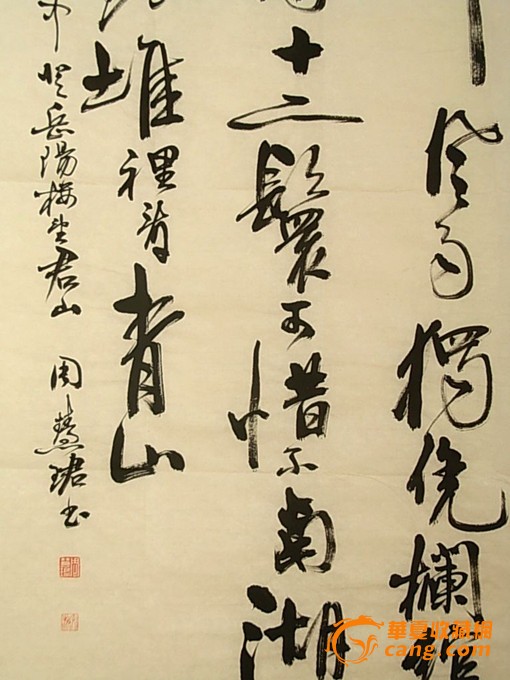 風雨獨凭欄綰
十二鬟可惜不當湖
堆裡看青山
登岳陽樓望君山 周慧珺書
華夏收藏網
cang.com